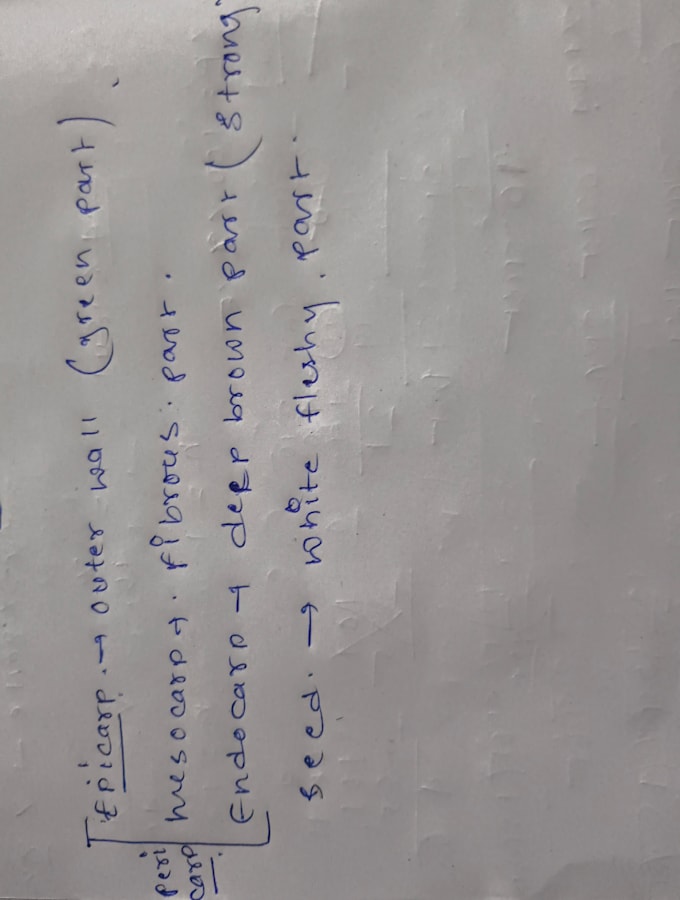 Epicarp. → outer wall (green part).
mesocarp → . fibrous . part .
Endocarp → deep brown part (strong
Peri
carp
seed. → white fleshy . part .